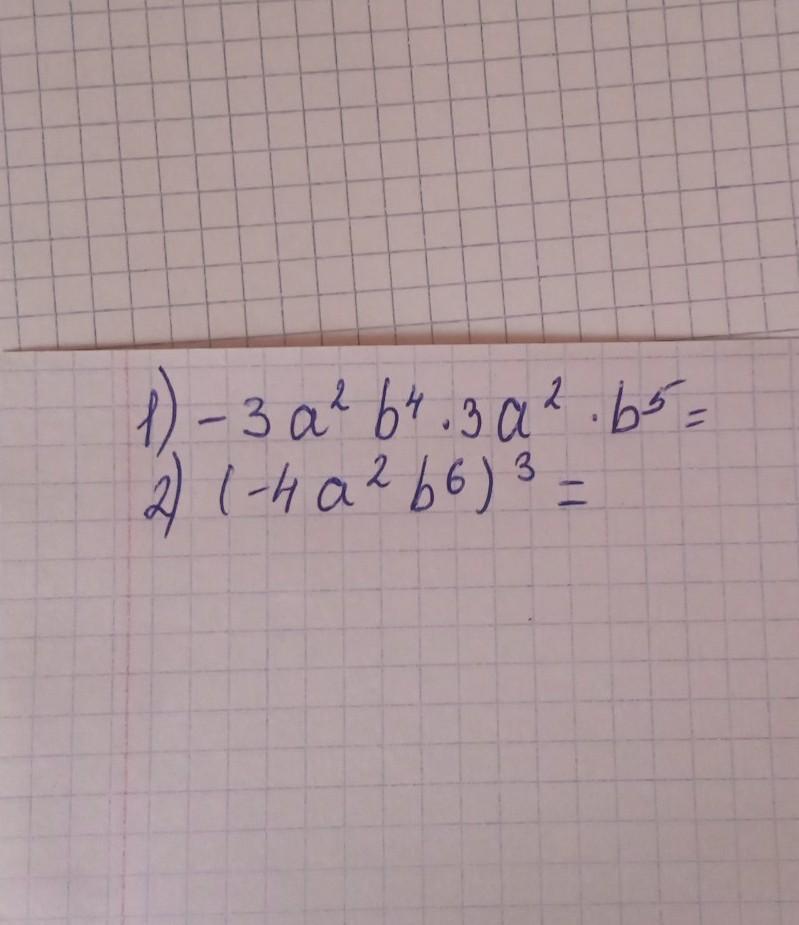 1) -3a² b⁴ · 3a² · b⁵ =
2) (-4a² b⁶)³ =